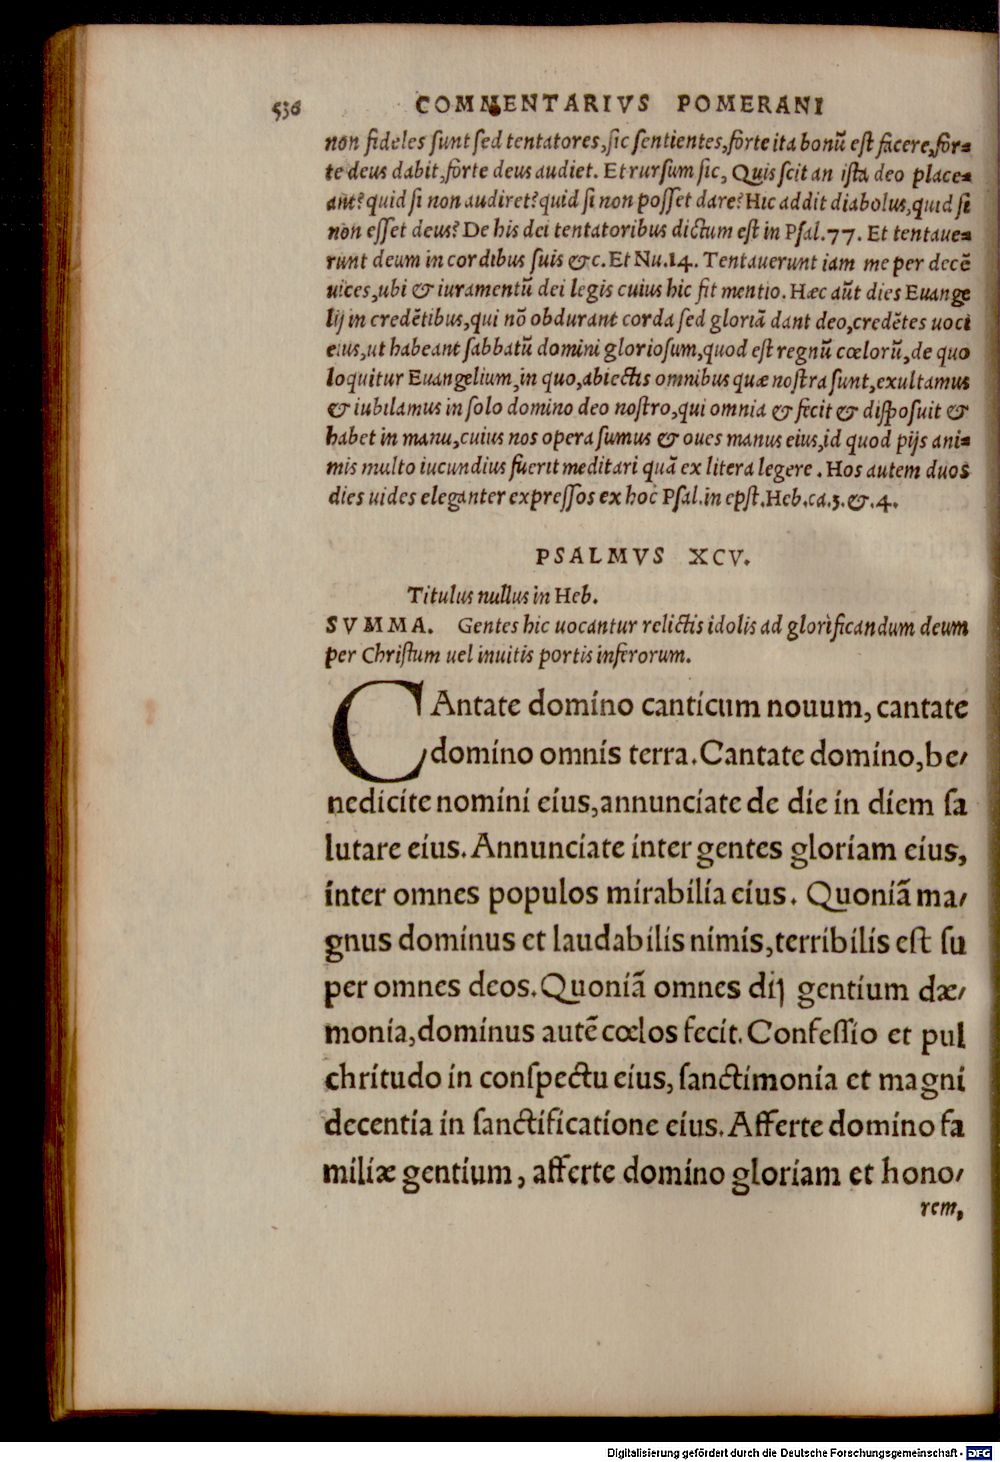 536 COMMENTARIVS POMERANI
non fideles sunt sed tentatores, sic sentientes, forte ita bonũ est facere, for=
te deus dabit, forte deus audiet. Et rursum sic, Quis scit an ista deo place=
ant? quid si non audiret? quid si non posset dare? Hic addit diabolus, quid si
non esset deus? De his dei tentatoribus dictum est in Psal.77. Et tentaue=
runt deum in cordibus suis &c. Et Nu.14. Tentauerunt iam me per decẽ
uices, ubi & iuramentũ dei legis cuius hic fit mentio. Hæc aũt dies Euange
lij in credẽtibus, qui nõ obdurant corda sed gloriã dant deo, credẽtes uoci
eius, ut habeant sabbatũ domini gloriosum, quod est regnũ cœlorũ, de quo
loquitur Euangelium, in quo, abiectis omnibus quæ nostra sunt, exultamus
& iubilamus in solo domino deo nostro, qui omnia & fecit & disposuit &
habet in manu, cuius nos opera sumus & oues manus eius, id quod pijs ani=
mis multo iucundius fuerit meditari quã ex litera legere. Hos autem duos
dies uides eleganter expressos ex hoc Psal. in epst. Heb. ca.3. &. 4.
PSALMVS XCV.
Titulus nullus in Heb.
SVMMA. Gentes hic uocantur relictis idolis ad glorificandum deum
per Christum uel inuitis portis inferorum.
CAntate domino canticum nouum, cantate
domino omnis terra. Cantate domino, be/
nedicite nomini eius, annunciate de die in diem sa
lutare eius. Annunciate inter gentes gloriam eius,
inter omnes populos mirabilia eius. Quoniã ma/
gnus dominus et laudabilis nimis, terribilis est su
per omnes deos. Quoniã omnes dij gentium dæ/
monia, dominus autẽ cœlos fecit. Confessio et pul
chritudo in conspectu eius, sanctimonia et magni
decentia in sanctificatione eius. Afferte domino fa
miliæ gentium, afferte domino gloriam et hono/
rem,
Digitalisierung gefördert durch die Deutsche Forschungsgemeinschaft - DFG